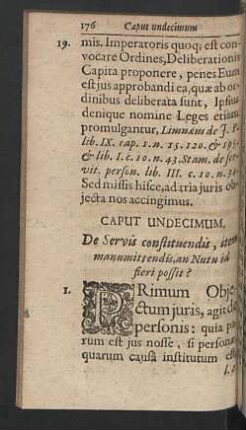 176 Caput undecimum
19. mis. Imperatoris quoq; est con-
vocare Ordines, Deliberationis
Capita proponere, penes Eum
est jus approbandi ea, quæ ab or-
dinibus deliberata sunt, Ipsius
denique nomine Leges etiam
promulgantur, Limnæus de J. P.
lib. IX. cap. 1. n. 15. 120. & 195.
& lib. I. c. 10. n. 43. Stam. de ser-
vit. person. lib. III. c. 10. n. 34.
Sed missis hisce, ad tria juris ob-
jecta nos accingimus.
CAPUT UNDECIMUM.
De Servis constituendis, item
manumittendis, an Nutu id
fieri possit?
1. PRimum Obje-
ctum juris, agit de
personis: quia pa-
rum est jus nosse, si personæ,
quarum causâ institutum est